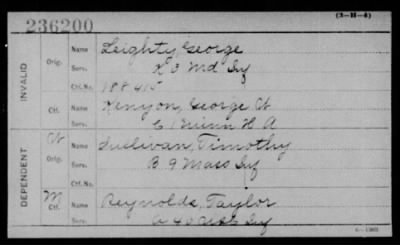 236200
(3-H-4)
INVALID
Orig. Name Leighty, George
Serv. K 3 Md Inf
Ctf. No. 188415
Ctf. Name Kenyon, George W
Serv. C 1 Minn H A
DEPENDENT
W Orig. Name Sullivan, Timothy
Serv. B 9 Mass Inf
Ctf. No.
M Ctf. Name Reynolds, Taylor
Serv. Inf